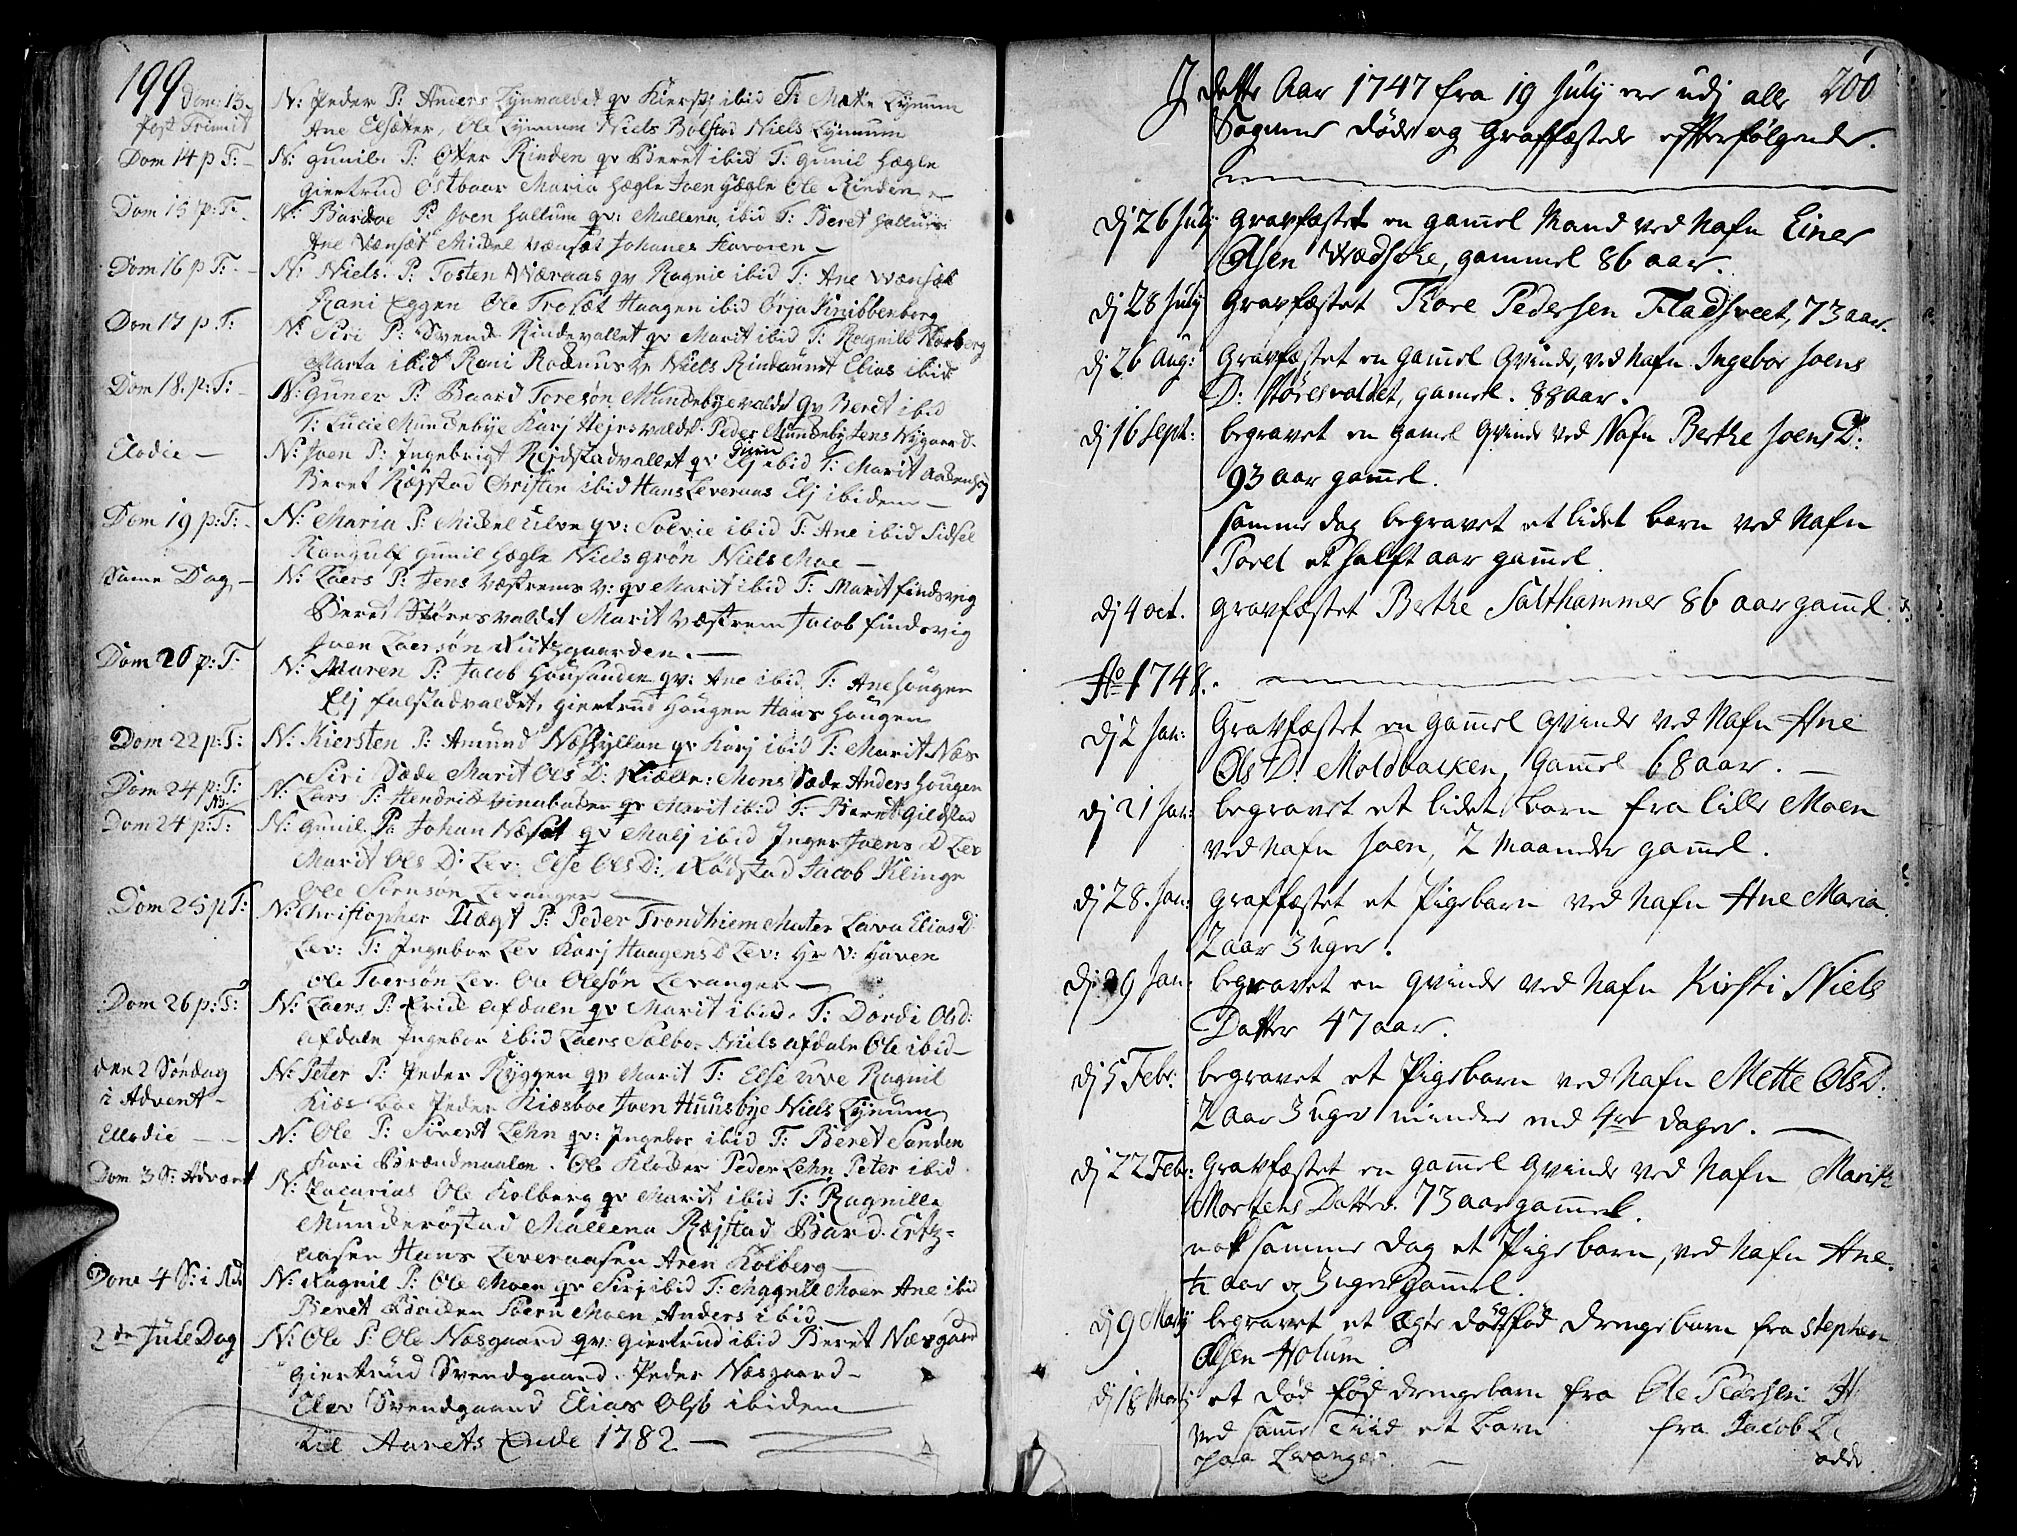 199
Dom: 13 N: Peder P: Anders Lynvaldet qv Kierstj ibid T: Mette Lynum
post Trinit Ane Elsæter, Ole Lynum Niels Bolstad Niels Lynum
Dom 14 p T: N: gunil. P: Otter Rinden qv Beret ibid T: gunil Hægle
giertrud Østbaar Maria Hægle Joen Hægle Ole Rinden
Dom 15 p: T: N: P: Joen Hallum qv: Mallena ibid T: Beret Hallum
Ane Vænset Mickel Vænset Johanes
Dom 16 p T: N: Niels. P: Tosten Væraas qv Ragnil ibid T: Ane Vænset
Rani Eggen Ole Troset Haagen ibid
Dom 17 p: T: N: Siri P: Svend Rindevallet qv Marit ibid T: Ragnill
Marta ibid Rani Niels Rindaunet Elias ibid
Dom 18. p: T: N: guner P: Baard Toresøn Mundebyevaldet qv Beret ibid
T: Lucie Mundebye Karj Peder Mundeby Jens Nygaard
Elodie N: Joen P: Ingebrigt Rejdstadvallet qv Elj ibid T: Marit
Beret Ræjstad Christin ibid Hans Leveraas Elj ibidem
Dom 19 p: T: N: Maria P: Mickel Ulve qv: Solvie ibid T: Ane ibid Sidsel
gunil Hægle Niels grøn Niels Moe
Same Dag N: Laers P: Jens Væstrems v: qv Marit ibid T: Marit findsvig
Beret Støresvaldet Marit Væstrem Jacob findsvig
Joen Laersøn
Dom 20 p: T: N: Maren P: Jacob Housanden qv: Ane ibid T: Ane Hougen
Elj falstadvaldet, giertrud Hougen Hans Hougen
Dom 22 p: T: N: Kiersten P: Amund Næshyllan qv Karj ibid T: Marit Næs
Siri Sæde Marit Ols D: Mons Sæde Anders Hougen
Dom 24 p: T: N: Lars P: Hendrik qv Marit ibid T: Beret Gildstad
Dom 24 p: T: N: gunil. P: Johan Næset qv Malj ibid Inger Joens D Lev
Marit Ols D: Lev: Else Ols D: Rødstad Jacob Klinge
Ole Sørnsøn Levanger
Dom 25 p T: N: Christopher Uægt P: Peder Trondhiem Muter Lava Elias D:
Lev: T: Ingebor Lev Karj Haagens D Lev: Hr V: Haven
Ole Toersøn Lev. Ole Olesøn Levanger
Dom 26 p: T: N: Laers P: afdalen qv Marit ibid. T: Dordi Ols D:
afdale Ingebor ibid Laers Sælbo. Niels afdale Ole ibid
den 2 Søndag N: Peter P: Peder Ryggen qv Marit T: Else Ragnil
i Advent Peder Kiæsboe Joen Huusbye Niels Lynum
Ellodie N: Ole P: Sivert Lehn qv: Ingebor ibid T: Beret Sanden
Kari Brændmaalen. Ole Peder Lehn Peter ibid
Dom 3 S: Advent N: Zacarias Ole Kolberg qv Marit ibid T: Ragnille
Munderøstad Mallena Ræjstad Baard. Ertz-
aasen Hans Leveraasen Aren Kolberg
Dom 4 S: i Ad N: Ragnil P: Ole Moen qv Sirj ibid T: Magnill Moen Ane ibid
Beret Moen Anders ibid
2de Jule Dag N: Ole P: Ole Næsgaard qv: giertrud ibid Beret Næsgaard
giertrud Svendgaard. Peder Næsgaard
Elev Svendgaard Elias Ols ibidem
til Aarets Ende 1782
200
J dette Aar 1747 fra 19 July ere udj alle
Sogner døde og Graffæstede efterfølgende.
dj 26 July gravfæstet en gamel Mand ved Nafn Einer
Olsen, gammel 86 aar.
dj 28 July gravfæstet Thore Pedersen Fladsveet, 73 aar.
dj 26 Aug: Gravfæstet en gamel Qvinde, ved Nafn Ingebor Joens
D: Støresvaldet, gamel. 88 aar.
dj 16 Sept: begravet en gamel Qvinde ved Nafn Berthe Joens D:
93 aar gamel.
samme dag begravet et lidet barn ved Nafn
Torel et halft aar gamel.
dj 4 oct. gravfæstet Berthe Salthammer 86 aar gamel.
Ao 1748.
dj 2 Jan: Gravfæstet en gamel Qvinde ved Nafn Ane
Ols D: Moldbacken, Gamel 68 aar.
dj 21 Jan: begravet et lidet barn fra lille Moen
ved Nafn Joen, 2 Maaneder gamel.
dj 28. Jan: graffæstet et Pigebarn ved Nafn Ane Maria
2 aar 3 uger.
dj 29 Jan: begravet en Qvinde ved Nafn Kirsti Niels
Datter 47 aar.
dj 5 Febr: begravet et Pigebarn ved Nafn Mette Ols D:
2 aar 3 uger minder end 4re dager.
dj 22 Febr: Gravfæstet en gamel Qvinde ved Nafn Marith
Mortens Datter. 73 aar gamel.
nok samme dag et Pigebarn, ved Nafn Ane.
½ aar og 3 uger gamel.
dj 9 Martj begravet et ægte dødfød drengebarn fra Stephen
Olsen Holum
dj 18 Martj et død fød drengebarn fra Ole Pedersen H
ved samme Tiid et barn fra Jacob
paa Levanger. odde